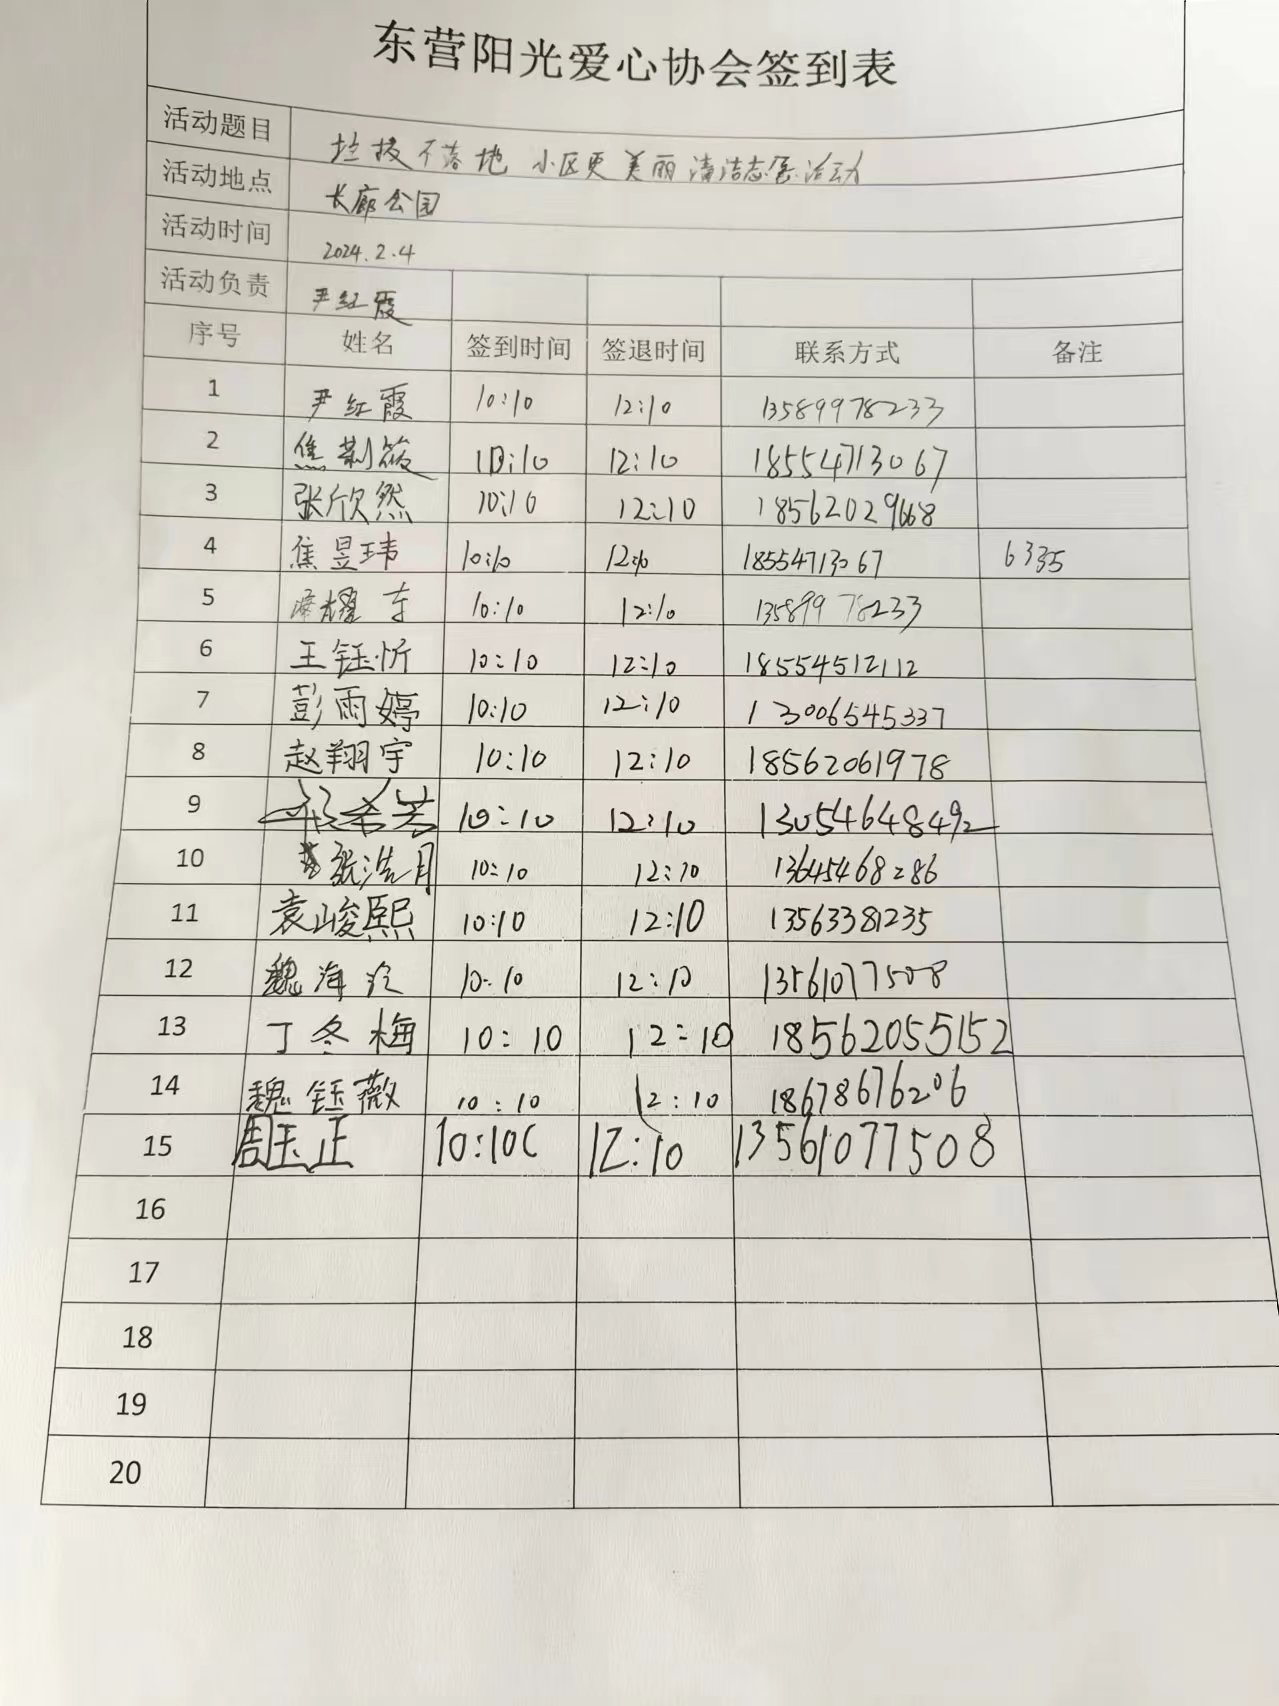 东营阳光爱心协会签到表
活动题目 垃圾不落地 小区更美丽 清洁志愿活动
活动地点 长廊公园
活动时间 2024.2.4
活动负责 尹红霞
序号 姓名 签到时间 签退时间 联系方式 备注
1 尹红霞 10:10 12:10 13589978233
2 焦 筱 10:10 12:10 18554713067
3 张欣然 10:10 12:10 18562029668
4 焦昱玮 10:10 12:10 18554713067 6335
5 耀车 10:10 12:10 13589978233
6 王钰忻 10:10 12:10 18554512112
7 彭雨婷 10:10 12:10 13006545337
8 赵翔宇 10:10 12:10 18562061978
9 10:10 12:10 13054648492
10 张浩月 10:10 12:10 13645468286
11 袁峻熙 10:10 12:10 13563381235
12 魏海 10:10 12:10 13561077508
13 丁冬梅 10:10 12:10 18562055152
14 魏钰薇 10:10 12:10 18678676206
15 周玉正 10:10 12:10 13561077508
16
17
18
19
20